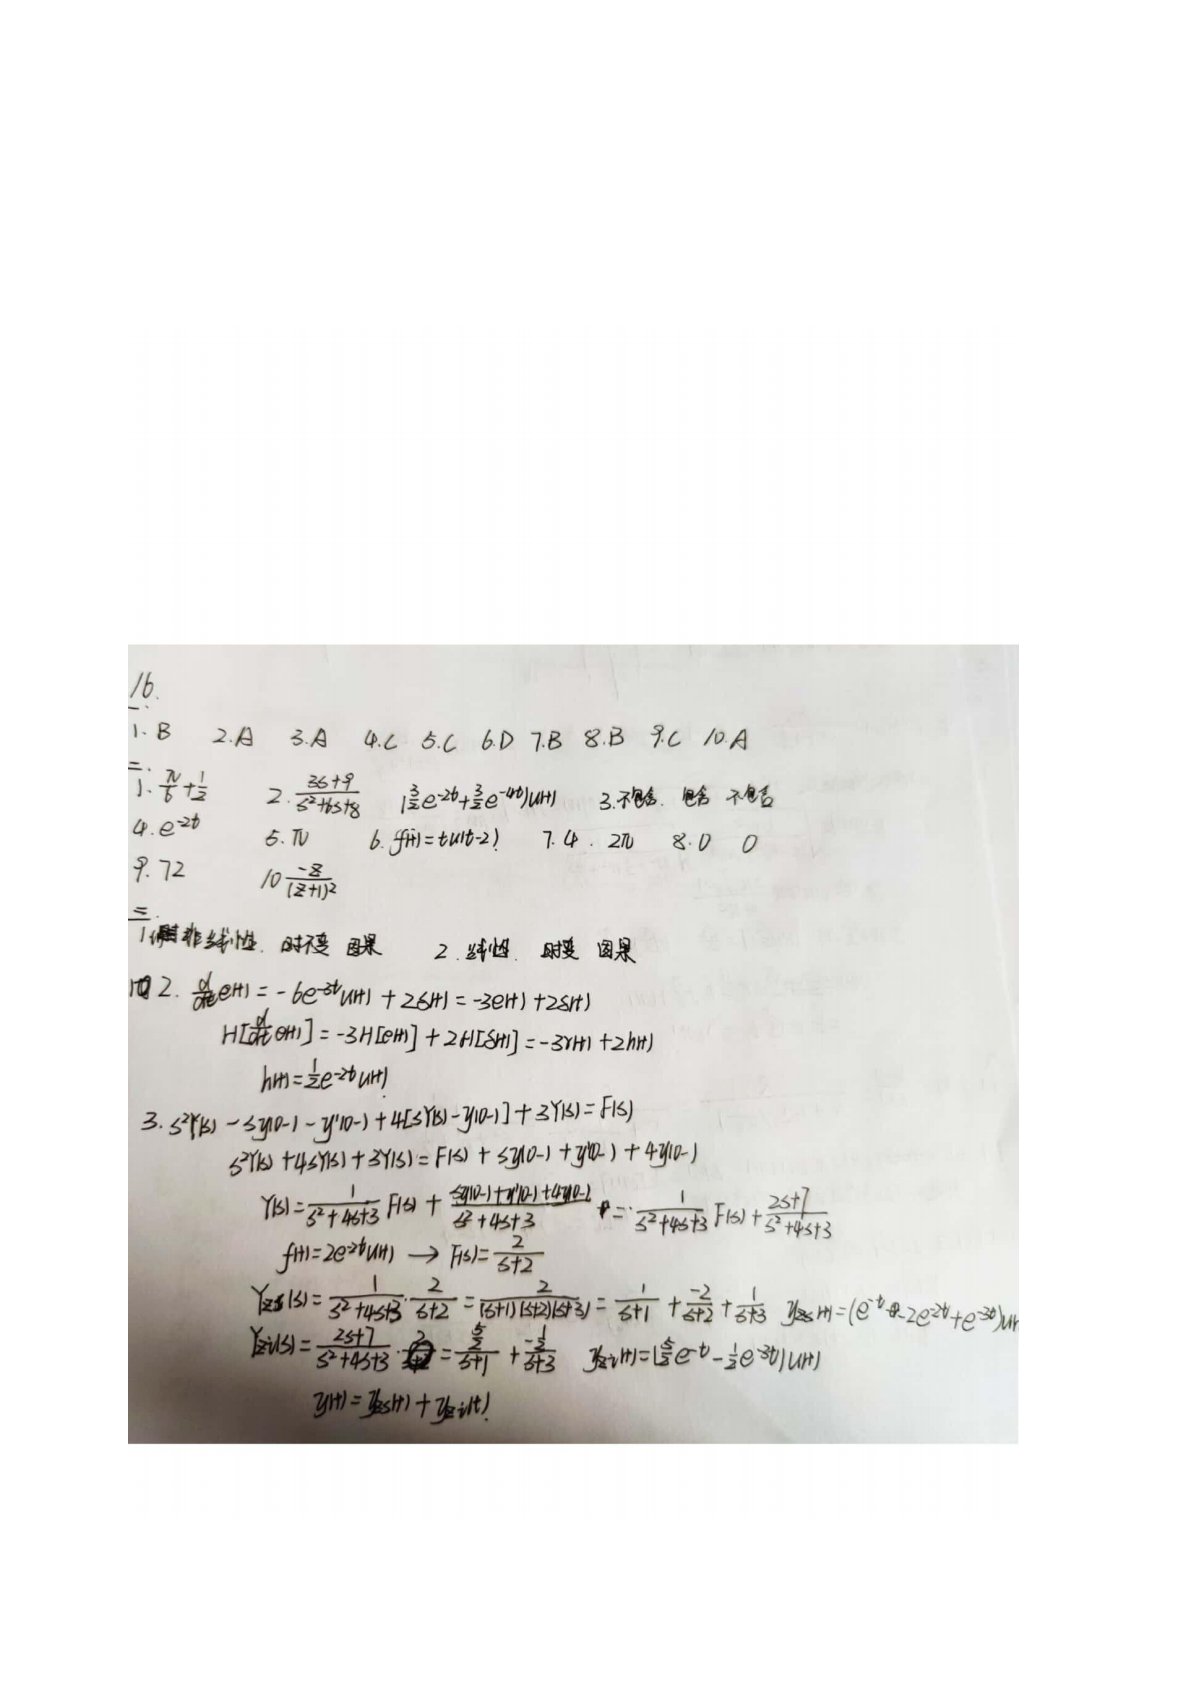 16.
一.
1. B 2. A 3. A 4. C 5. C 6. D 7. B 8. B 9. C 10. A
二.
1. π/6 + 1/2 2. (3s+9)/(s²+6s+8) (3/2 e^(-2t) + 3/2 e^(-4t))u(t) 3. 不包含. 包含 不包含
4. e^(-2t) 5. π 6. f(t) = tu(t-2) 7. 4. 2π 8. 0 0
9. 72 10 -z/(z+1)²
三.
1. 非线性. 时不变 因果 2. 线性. 时变 因果
四 2. d/dt e(t) = -6e^(-3t)u(t) + 2δ(t) = -3e(t) + 2δ(t)
H[d/dt e(t)] = -3H[e(t)] + 2H[δ(t)] = -3r(t) + 2h(t)
h(t) = 1/2 e^(-2t)u(t)
3. s²Y(s) - sy(0-) - y'(0-) + 4[sY(s) - y(0-)] + 3Y(s) = F(s)
s²Y(s) + 4sY(s) + 3Y(s) = F(s) + sy(0-) + y'(0-) + 4y(0-)
Y(s) = 1/(s²+4s+3) F(s) + (sy(0-)+y'(0-)+4y(0-))/(s²+4s+3) = 1/(s²+4s+3) F(s) + (2s+7)/(s²+4s+3)
f(t) = 2e^(-2t)u(t) → F(s) = 2/(s+2)
Yzs(s) = 1/(s²+4s+3) · 2/(s+2) = 2/((s+1)(s+2)(s+3)) = 1/(s+1) + -2/(s+2) + 1/(s+3) yzs(t) = (e^(-t) - 2e^(-2t) + e^(-3t))u(t
Yzi(s) = (2s+7)/(s²+4s+3) = (5/2)/(s+1) + (-1/2)/(s+3) yzi(t) = (5/2 e^(-t) - 1/2 e^(-3t))u(t)
y(t) = yzs(t) + yzi(t)